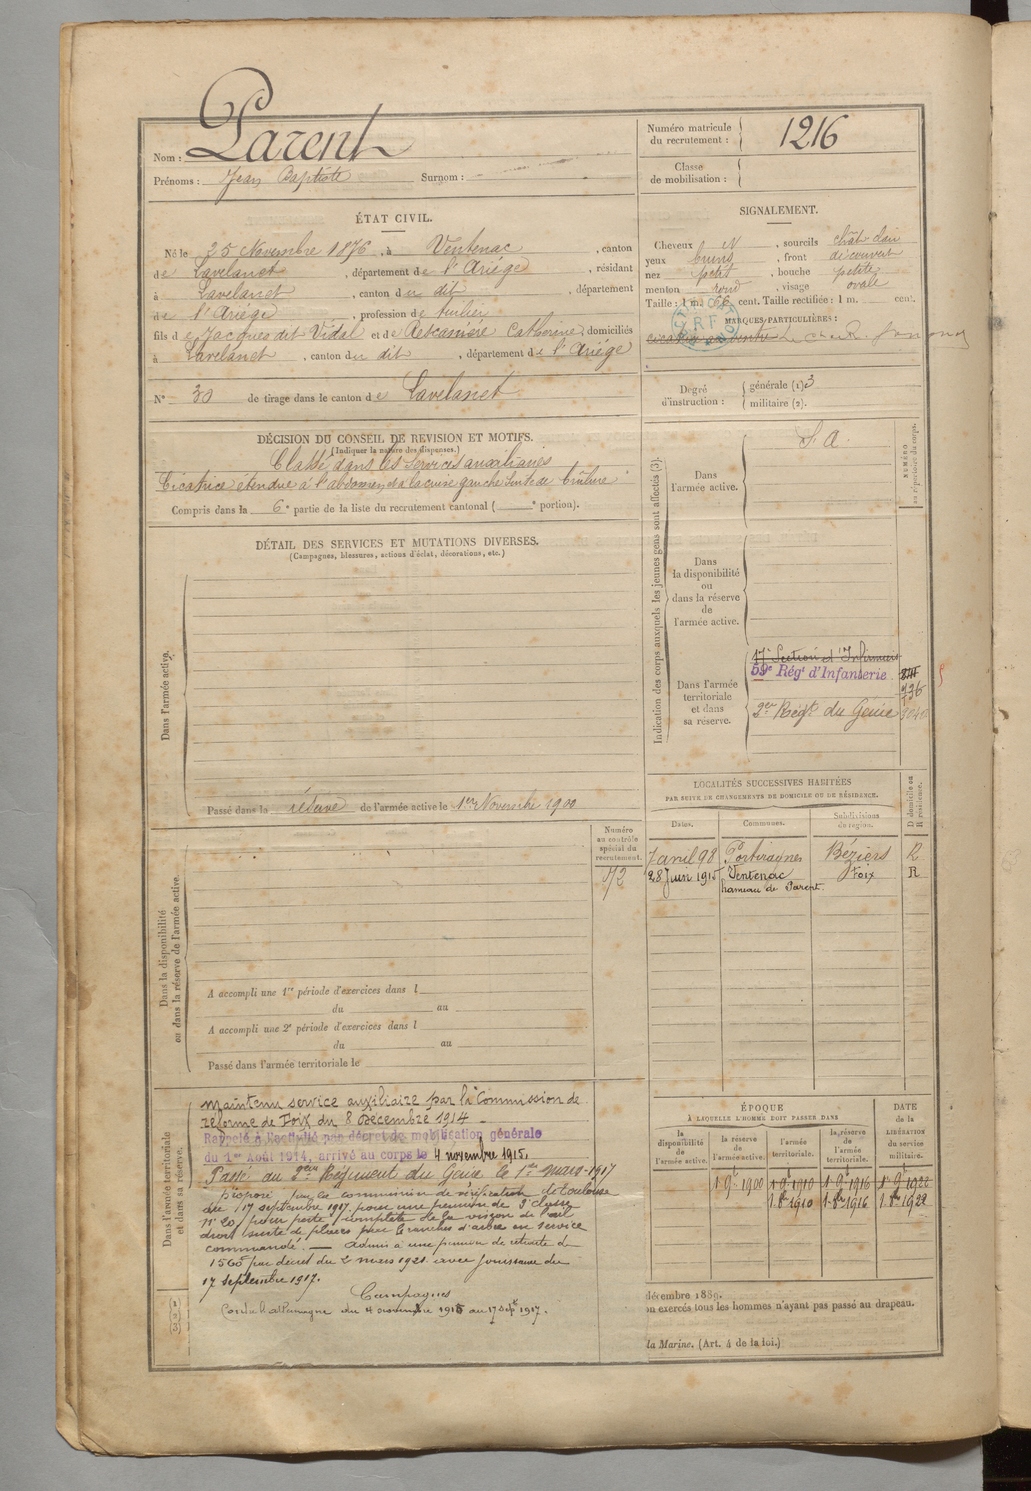 Nom : Parent
Prénoms : Jean Baptiste Surnom :
Numéro matricule
du recrutement : 1216
Classe
de mobilisation :
ÉTAT CIVIL.
Né le 25 Novembre 1876, à Ventenac, canton
de Lavelanet, département de l'Ariége, résidant
à Lavelanet, canton du dit, département
de l'Ariége, profession de
fils de Jacques dit Vidal et de Catherine, domiciliés
à Lavelanet, canton du dit, département de l'Ariége
N° 30 de tirage dans le canton de Lavelanet
SIGNALEMENT.
Cheveux N, sourcils chât clair
yeux bruns, front découvert
nez petit, bouche petite
menton rond, visage ovale
Taille : 1 m. 66 cent. Taille rectifiée : 1 m. cent.
MARQUES PARTICULIÈRES :
cicatrice au ventre
Degré
d'instruction :
générale (1) 3
militaire (2).
DÉCISION DU CONSEIL DE REVISION ET MOTIFS.
(Indiquer la nature des dispenses.)
Classé dans les services auxiliaires
Cicatrice étendue à l'abdomen, et à la cuisse gauche suite de brûlure
Compris dans la 6e partie de la liste du recrutement cantonal ( e portion).
DÉTAIL DES SERVICES ET MUTATIONS DIVERSES.
(Campagnes, blessures, actions d'éclat, décorations, etc.)
Dans l'armée active.
Passé dans la réserve de l'armée active le 1er Novembre 1900
Indication des corps auxquels les jeunes gens sont affectés (3).
NUMÉRO
au répertoire du corps.
Dans
l'armée active.
S. A.
Dans
la disponibilité
ou
dans la réserve
de
l'armée active.
Dans l'armée
territoriale
et dans
sa réserve.
17e Section d'Infirmiers
59e Régt d'Infanterie
736
2e Régt du Génie
LOCALITÉS SUCCESSIVES HABITÉES
PAR SUITE DE CHANGEMENTS DE DOMICILE OU DE RÉSIDENCE.
Dates. Communes. Subdivisions
de région. D domicile ou
R résidence.
7 avril 98 Portiragnes Béziers R
28 Juin 1915 Ventenac Foix R
hameau de Parent.
Numéro
au contrôle
spécial du
recrutement.
72
Dans la disponibilité
ou dans la réserve de l'armée active.
A accompli une 1re période d'exercices dans l
du au
A accompli une 2e période d'exercices dans l
du au
Passé dans l'armée territoriale le
Dans l'armée territoriale
et dans sa réserve.
maintenu service auxiliaire par la Commission de
réforme de Foix du 8 Décembre 1914
Rappelé à l'activité par décret de mobilisation générale
du 1er Août 1914, arrivé au corps le 4 novembre 1915.
Passé au 2ème Régiment du Génie le 1er mars 1917
Proposé par la commission de vérification de Toulouse
du 17 septembre 1917 pour une pension de 5e classe
n° 20, pour perte complète de la vision de l'œil
droit suite de plaies par branches d'arbre en service
commandé. — Admis à une pension de retraite de
1565f par décret du 2 mars 1921 avec jouissance du
17 septembre 1917.
Campagnes
Contre l'Allemagne du 4 novembre 1915 au 17 septe 1917.
ÉPOQUE
À LAQUELLE L'HOMME DOIT PASSER DANS
la
disponibilité
de
l'armée active.
la réserve
de
l'armée active.
l'armée
territoriale.
la réserve
de
l'armée
territoriale.
DATE
de la
LIBÉRATION
du service
militaire.
1 9bre 1900 1 9bre 1910 1 9bre 1916 1er 9bre 1922
1 8bre 1910 1 8bre 1916 1 8bre 1922
décembre 1889.
on exercés tous les hommes n'ayant pas passé au drapeau.
la Marine. (Art. 4 de la loi.)